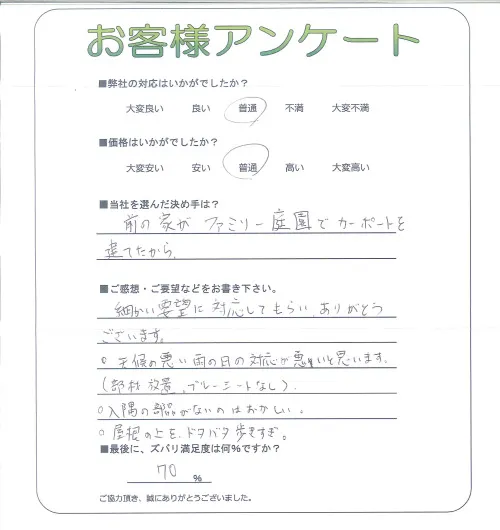 お客様アンケート
■弊社の対応はいかがでしたか？
大変良い 良い 普通 不満 大変不満
■価格はいかがでしたか？
大変安い 安い 普通 高い 大変高い
■当社を選んだ決め手は？
前の家が ファミリー庭園でカーポートを
建てたから。
■ご感想・ご要望などをお書き下さい。
細かい要望に対応してもらい、ありがとう
ございます。
○天候の悪い雨の日の対応が悪いと思います。
(部材放置、ブルーシートなし)。
○入隅の部品がないのはおかしい。
○屋根の上を、ドタバタ歩きすぎ。
■最後に、ズバリ満足度は何%ですか？
70 %
ご協力頂き、誠にありがとうございました。